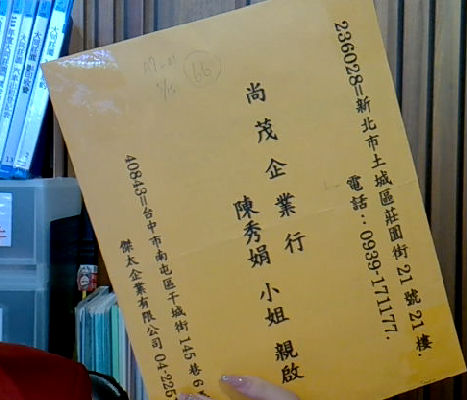 236028=新北市土城區莊園街21號21樓.
電話：0939-171177.
尚茂企業行
陳秀娟 小姐 親啟
40843=台中市南屯區干城街145巷6
傑太企業有限公司 04-225
66